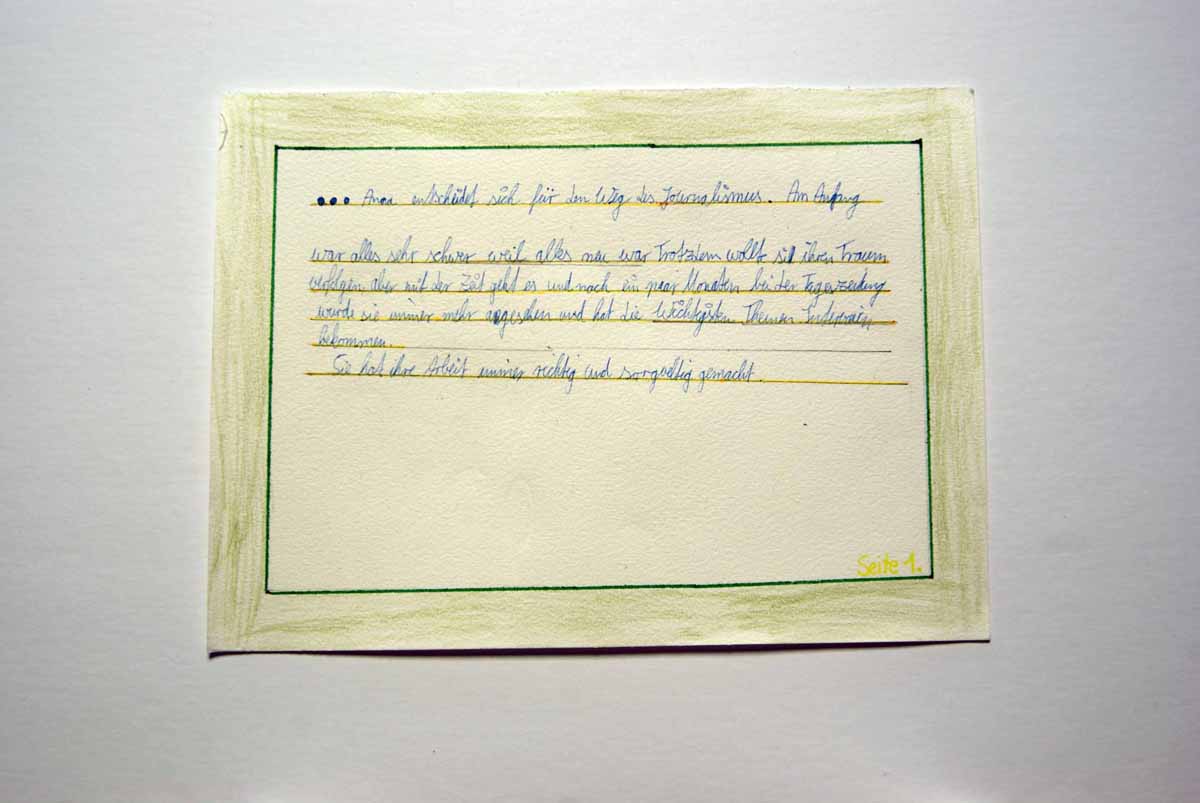 ... Anna entscheidet sich für den Weg des Journalismus. Am Anfang
war alles sehr schwer weil alles neu war Trotzdem wollte sie ihren Traum
verfolgen aber mit der Zeit geht es und nach ein paar Monaten bei der Tageszeitung
wurde sie immer mehr angesehen und hat die Wichtigsten Themen
bekommen.
Sie hat ihre Arbeit immer richtig und sorgveltig gemacht.
Seite 1.